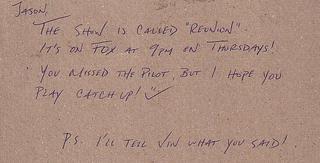 JASON,
THE SHOW IS CALLED "REUNION".
IT'S ON FOX AT 9PM ON THURSDAYS!
YOU MISSED THE PILOT, BUT I HOPE YOU
PLAY CATCH UP!
P.S. I'LL TELL VIN WHAT YOU SAID!